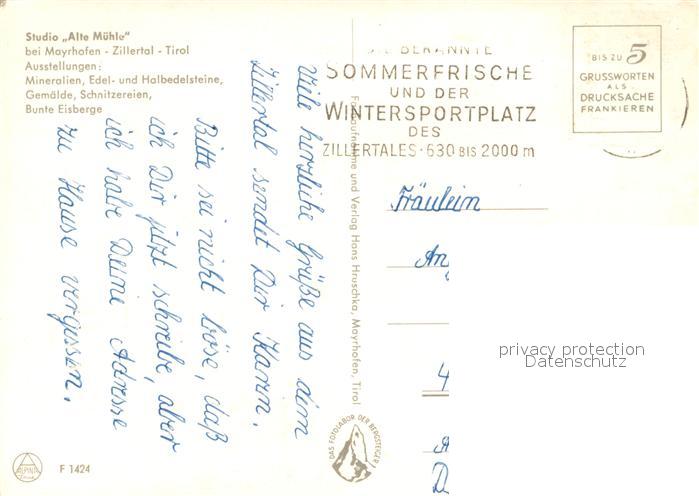 Studio „Alte Mühle"
bei Mayrhofen - Zillertal - Tirol
Ausstellungen:
Mineralien, Edel- und Halbedelsteine,
Gemälde, Schnitzereien,
Bunte Eisberge
Viele herzliche Grüße aus dem
Zillertal sendet Dir Karen.
Bitte sei nicht böse, daß
ich Dir jetzt schreibe, aber
ich habe Deine Adresse
zu Hause vergessen.
DIE BEKANNTE
SOMMERFRISCHE
UND DER
WINTERSPORTPLATZ
DES
ZILLERTALES · 630 BIS 2000 m
BIS ZU 5
GRUSSWORTEN
ALS
DRUCKSACHE
FRANKIEREN
Fräulein
An
4
A
D
Verlag Hans Hruschka, Mayrhofen, Tirol
DAS FOTOLABOR DER BERGSTEIGER
ALPINA
F 1424
privacy protection
Datenschutz